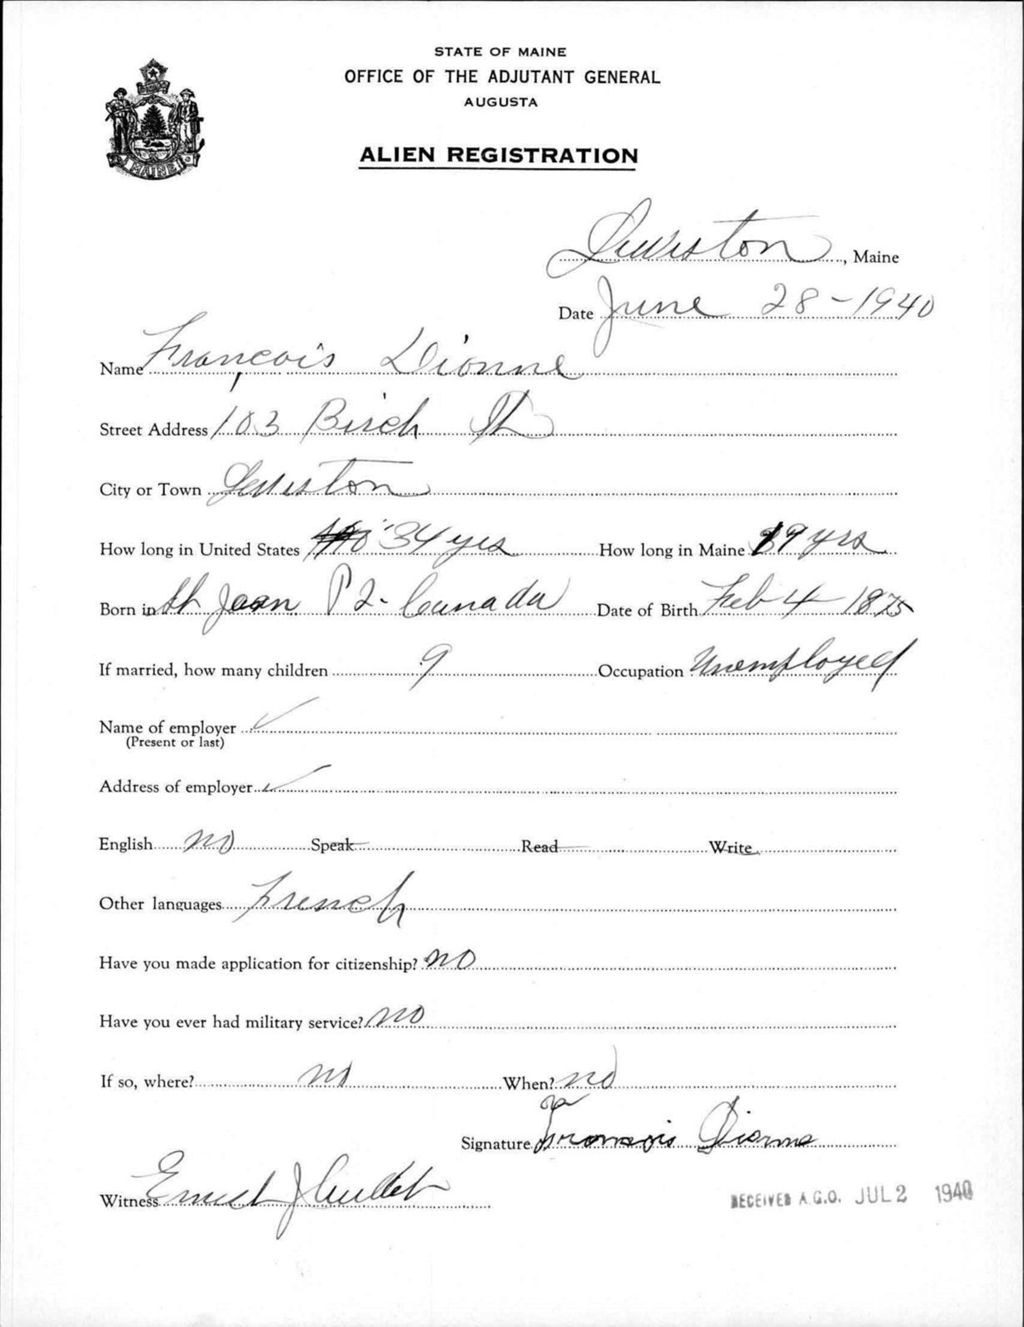 STATE OF MAINE
OFFICE OF THE ADJUTANT GENERAL
AUGUSTA
ALIEN REGISTRATION
MAINE
Lewiston, Maine
Date June 28-1940
Name François Dionne
Street Address 103 Birch St
City or Town Lewiston
How long in United States 34 yrs How long in Maine yrs
Born in St Jean P2- Canada Date of Birth Feb 4 1875
If married, how many children 9 Occupation Unemployed
Name of employer ✓
(Present or last)
Address of employer ✓
English no Speak Read Write
Other languages French
Have you made application for citizenship? no
Have you ever had military service? no
If so, where? no When? no
Signature Francois Dionne
Witness Ernest J
RECEIVED A.G.O. JUL 2 1940